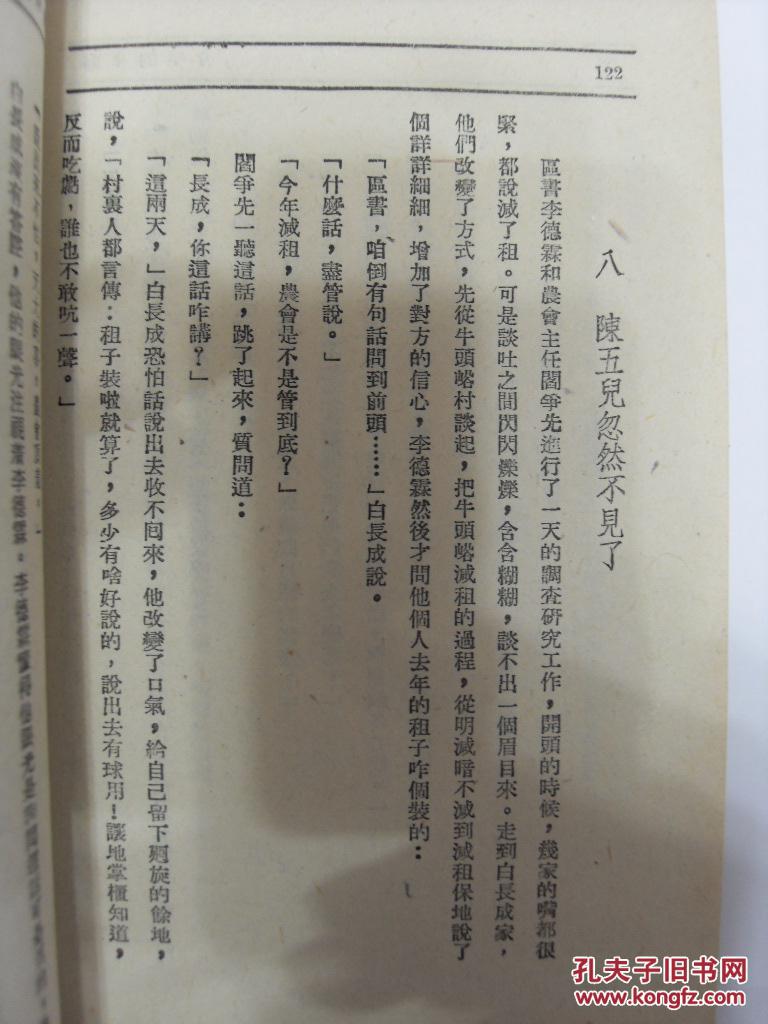 122
八　陳五兒忽然不見了
區書李德霖和農會主任閻爭先進行了一天的調查研究工作，開頭的時候，幾家的嘴都很
緊，都說減了租。可是談吐之間閃閃爍爍，含含糊糊，談不出一個眉目來。走到白長成家，
他們改變了方式，先從牛頭峪村談起，把牛頭峪減租的過程，從明減暗不減到減租保地說了
個詳詳細細，增加了對方的信心，李德霖然後才問他個人去年的租子咋個裝的：
「區書，咱倒有句話問到前頭……」白長成說。
「什麼話，盡管說。」
「今年減租，農會是不是管到底？」
閻爭先一聽這話，跳了起來，質問道：
「長成，你這話咋講？」
「這兩天，」白長成恐怕話說出去收不囘來，他改變了口氣，給自己留下廻旋的餘地，
說，「村裏人都言傳：租子裝啦就算了，多少有啥好說的，說出去有球用！讓地掌櫃知道，
反而吃虧，誰也不敢吭一聲。」
白長成沒有答腔，他的眼光注視着李德霖。李德霖
孔夫子旧书网
www.kongfz.com